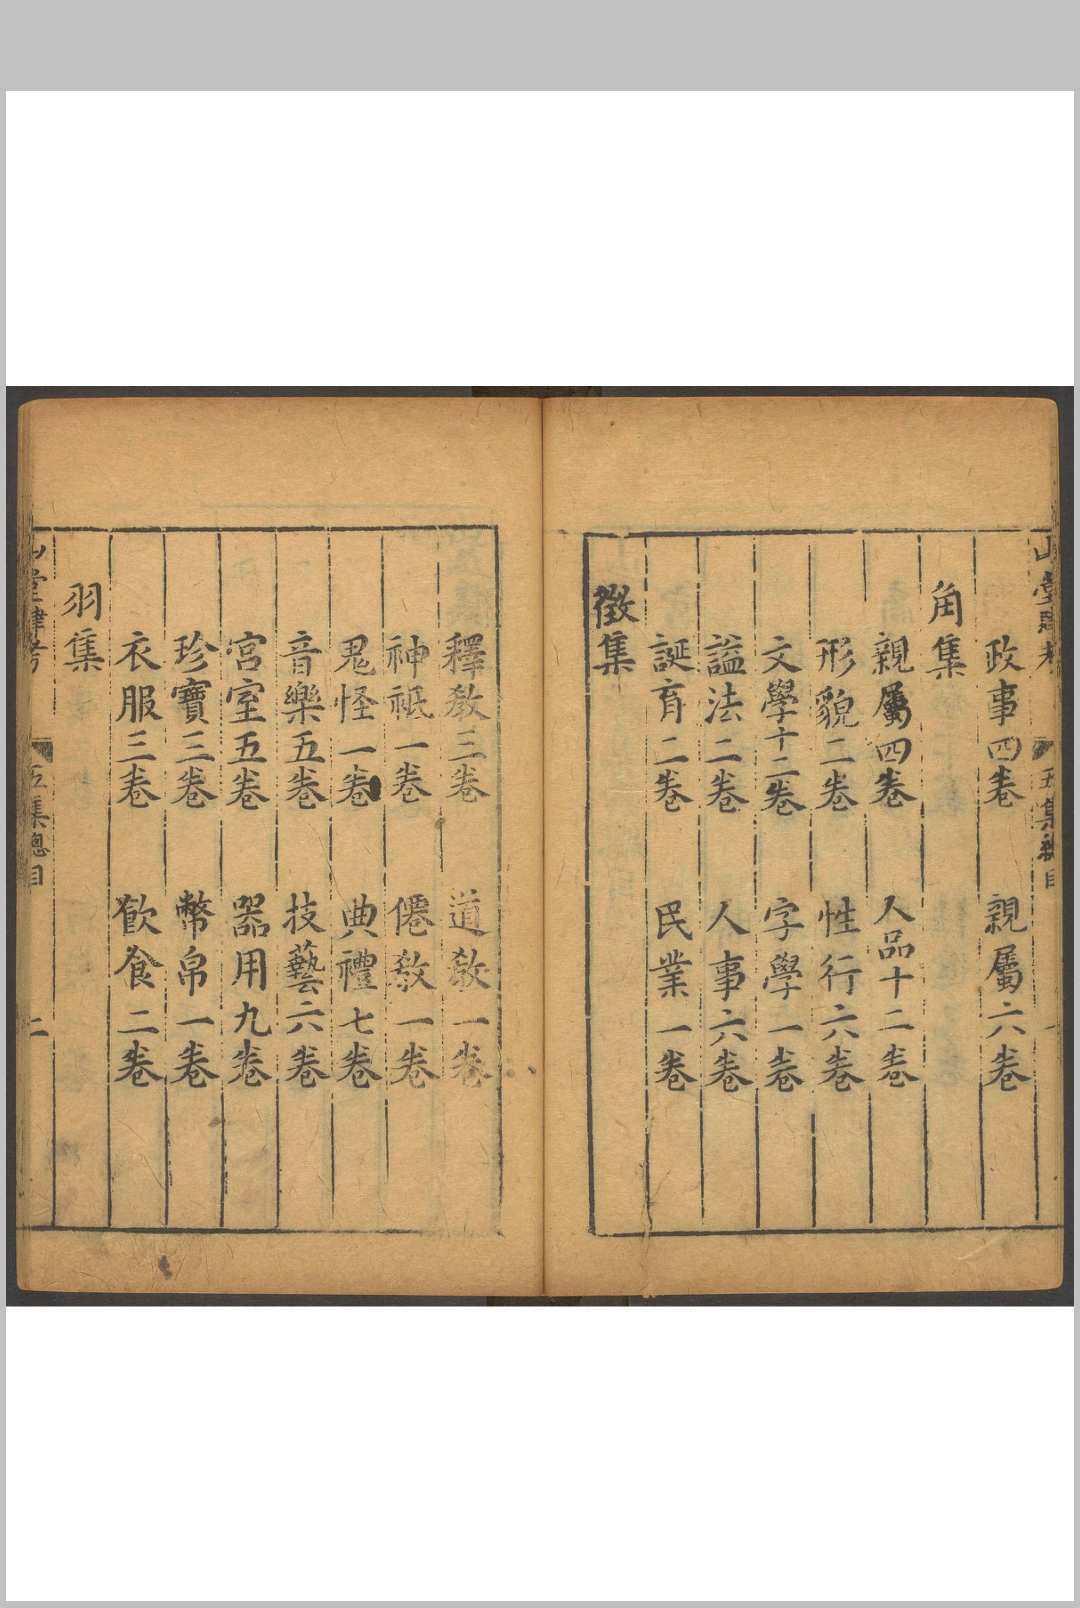 政事四卷　親屬六卷
角集
親屬四卷　人品十二卷
形貌二卷　性行六卷
文學十二卷　字學一卷
謚法二卷　人事六卷
誕育二卷　民業一卷
徵集
釋教三卷　道教一卷
神祗一卷　僊教一卷
鬼怪一卷　典禮七卷
音樂五卷　技藝六卷
宮室五卷　器用九卷
珍寶三卷　幣帛一卷
衣服三卷　飲食二卷
羽集
山堂肆考　五集總目　二